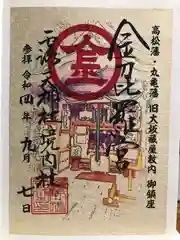 高松藩・丸亀藩 旧大坂蔵屋敷内 御鎮座
金刀比羅宮
金
神社境内社
参拝 令和四年 九月 七日